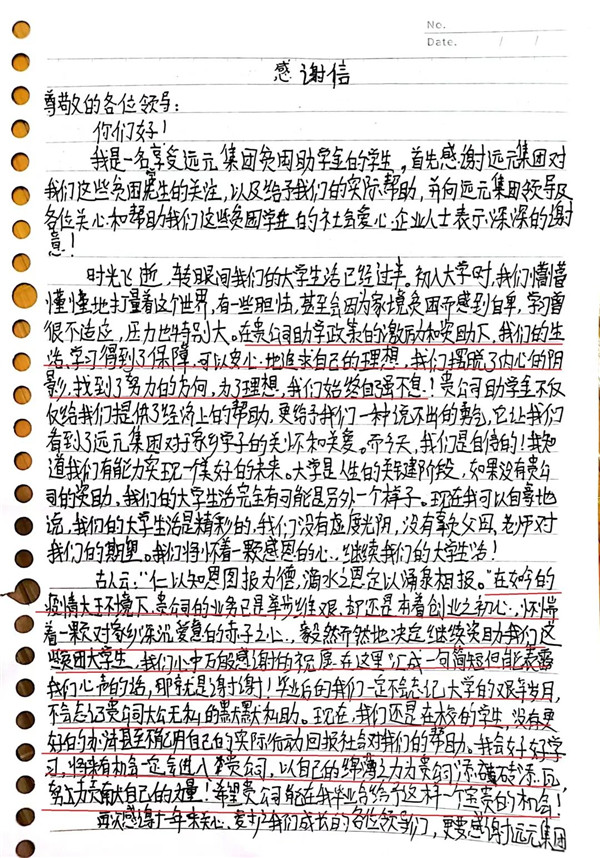 No.
Date.
感谢信
尊敬的各位领导:
你们好!
我是一名享受远元集团贫困助学金的学生,首先感谢远元集团对
我们这些贫困学生的关注,以及给予我们的实际帮助,并向远元集团领导及
各位关心和帮助我们这些贫困学生的社会爱心企业人士表示深深的谢
意!
时光飞逝,转眼间我们的大学生活已经过半。初入大学时,我们懵懵
懂懂地打量着这个世界,有一些胆怯,甚至会因为家境贫困而感到自卑,学习
很不适应,压力也特别大。在贵公司助学政策的激励和资助下,我们的生
活、学习得到了保障,可以安心地追求自己的理想,我们摆脱了内心的阴
影,找到了努力的方向,为了理想,我们始终自强不息!贵公司助学金不仅
仅给我们提供了经济上的帮助,更给予我们一种说不出的勇气,它让我们
看到了远元集团对于家乡学子的关怀和关爱。而今天,我们是自信的!我知
道我们有能力实现一个美好的未来。大学是人生的关键阶段,如果没有贵公
司的资助,我们的大学生活完全有可能是另外一个样子。现在我可以自豪地
说,我们的大学生活是精彩的,我们没有虚度光阴,没有辜负父母、老师对
我们的期望。我们将怀着一颗感恩的心,继续我们的大学生活!
古人云:"仁以知恩图报为德,滴水之恩定以涌泉相报。"在如今的
疫情大环境下,贵公司的业务已是举步维艰,却还是有着创业之初心,怀惴
着一颗对家乡深沉爱意的赤子之心,毅然而然地决定继续资助我们这
些贫困大学生,我们心中万般感谢的祝愿在这里汇成一句简短但能表露
我们心声的话,那就是谢谢!毕业后的我们一定不会忘记大学的艰辛岁月,
不会忘记贵公司大公无私的默默资助。现在,我们还是在校的学生,没有更
好的办法甚至不能用自己的实际行动回报社会对我们的帮助。我会好好学
习,将来有机会一定会进入贵公司,以自己的绵薄之力为贵公司添砖添瓦,
努力贡献自己的力量!希望贵公司能在我毕业后给予这样一个宝贵的机会!
再次感谢十年来关心、爱护我们成长的各位领导们,更要感谢远元集团